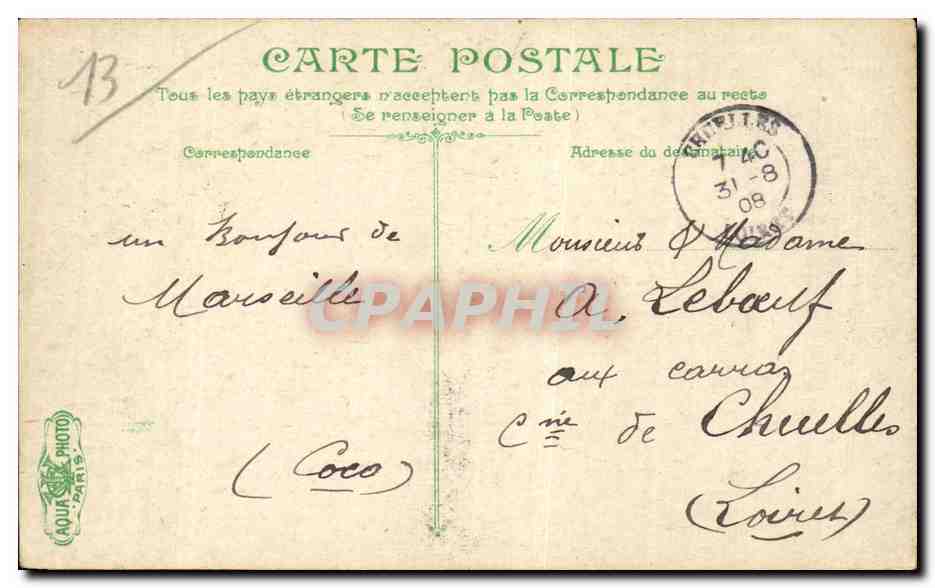 13
CARTE POSTALE
Tous les pays étrangers n'acceptent pas la Correspondance au recto
(Se renseigner à la Poste)
Correspondance
Adresse du destinataire
CHUELLES
7 40
31 -8
08
LOIRET
un Bonjour de
Marseille
(Coco)
Monsieur & Madame
A. Lebœuf
aux carras
Cne de Chuelles
(Loiret)
CPAPHIL
AQUA PHOTO
PARIS